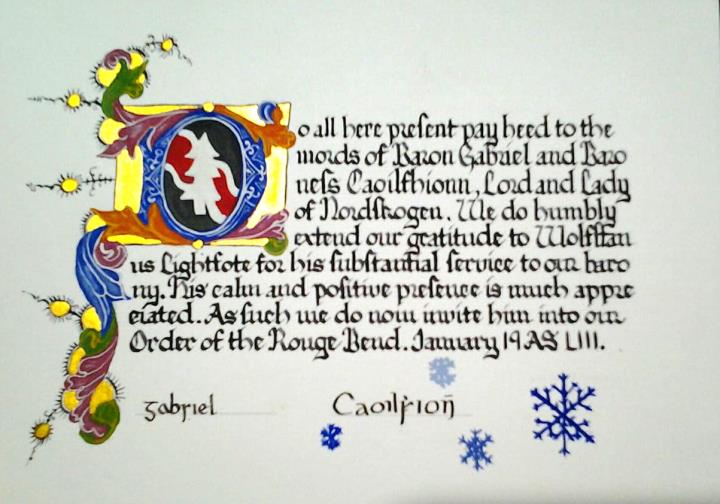 To all here present pay heed to the
words of Baron Gabriel and Baro
ness Caoilfhionn, Lord and Lady
of Nordskogen. We do humbly
extend our gratitude to Wolfstan
us Lightfote for his substantial service to our baro
ny. His calm and positive presence is much appre
ciated. As such we do now invite him into our
Order of the Rouge Bend. January 19 AS LIII.
Gabriel Caoilḟionn̄